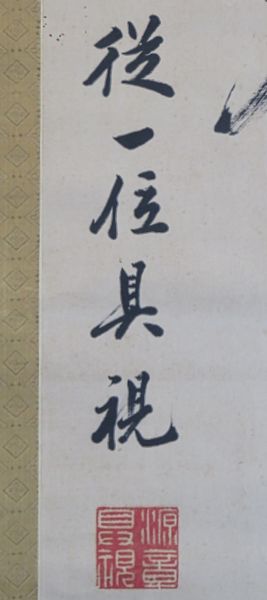 従一位具視
源章
具視